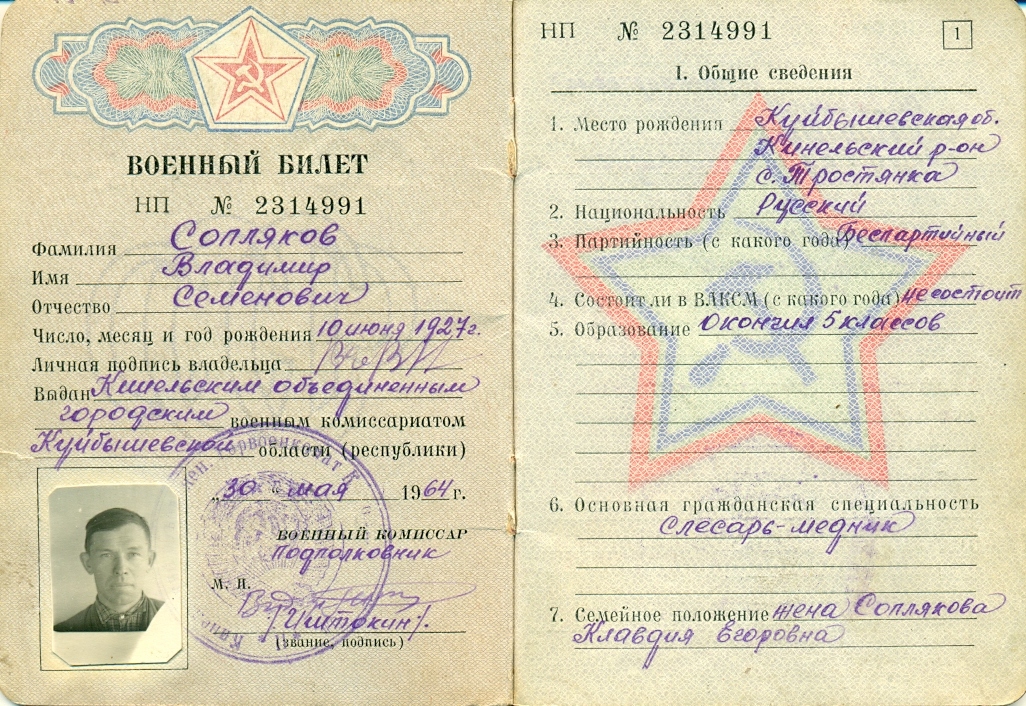 ВОЕННЫЙ БИЛЕТ
НП № 2314991
Фамилия Сопляков
Имя Владимир
Отчество Семенович
Число, месяц и год рождения 10 июня 1927 г.
Личная подпись владельца
Выдан Кинельским объединенным
городским военным комиссариатом
Куйбышевской области (республики)
„30“ мая 1964 г.
ВОЕННЫЙ КОМИССАР
Подполковник
М. П.
(звание, подпись)
НП № 2314991
1
I. Общие сведения
1. Место рождения Куйбышевская об.
Кинельский р-он
с. Тростянка
2. Национальность Русский
3. Партийность (с какого года) беспартийный
4. Состоит ли в ВЛКСМ (с какого года) не состоит
5. Образование Окончил 5 классов
6. Основная гражданская специальность
Слесарь-медник
7. Семейное положение жена Соплякова
Клавдия Егоровна